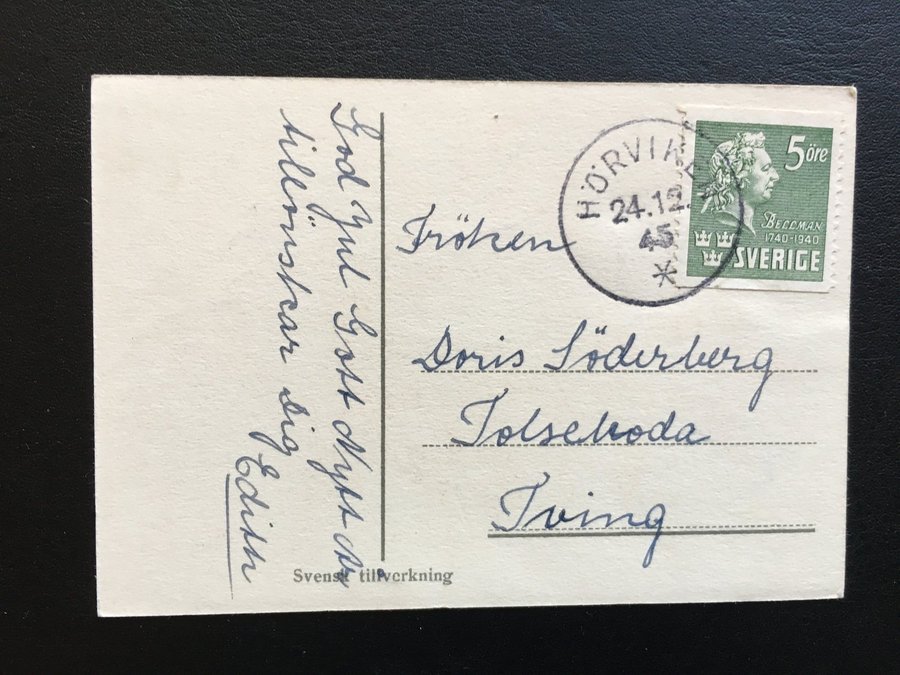 God Jul Gott Nytt År
tillönskar Dig
Edith
Fröken
Doris Söderberg
Tolseboda
Tving
HÖRVIKEN
24.12.
45
*
5 öre
BELLMAN
1740-1940
SVERIGE
Svensk tillverkning